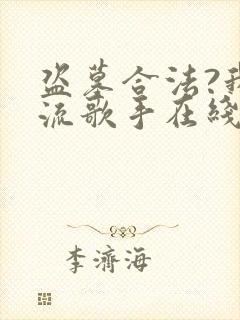 盗墓合法?我
流歌手在线
李济海